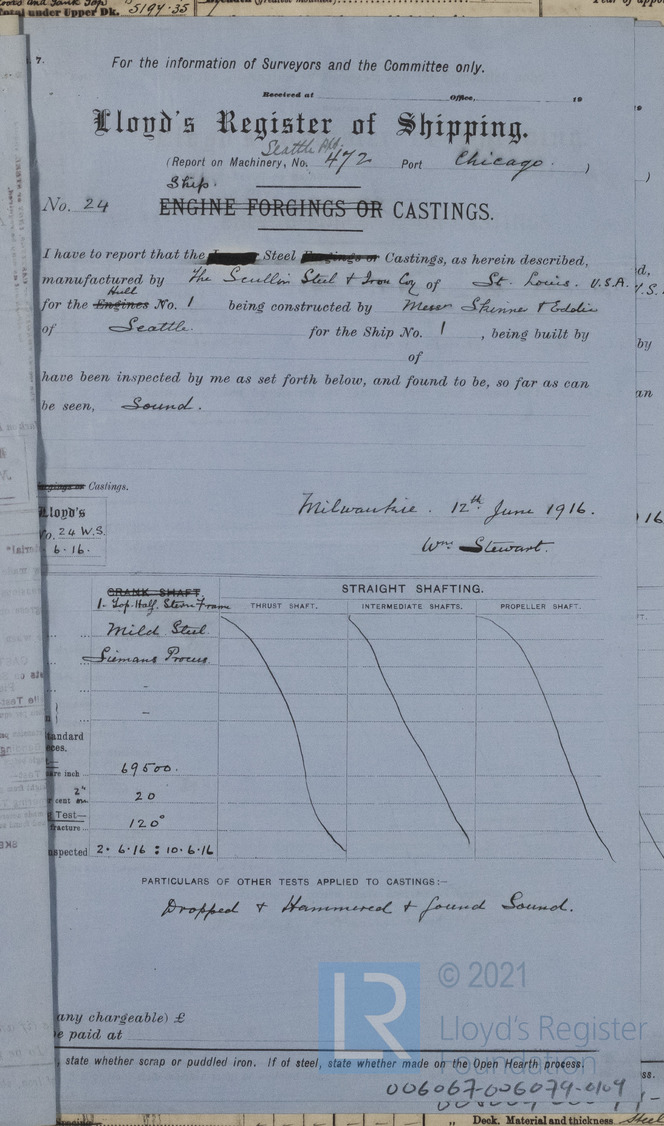 Total under Upper Dk. 5194.35
7.
For the information of Surveyors and the Committee only.
Received at Office, 19
Lloyd's Register of Shipping.
Seattle Rpt.
(Report on Machinery, No. 472 Port Chicago.)
Ship.
No. 24 ENGINE FORGINGS OR CASTINGS.
I have to report that the Steel Forgings or Castings, as herein described,
manufactured by The Scullin Steel & Iron Coy of St. Louis. U.S.A.
Hull
for the Engines No. 1 being constructed by Messrs Skinner & Eddie
of Seattle. for the Ship No. 1, being built by
of
have been inspected by me as set forth below, and found to be, so far as can
be seen, Sound.
Castings.
Milwaukie. 12th June 1916.
Lloyd's
No. 24 W.S.
6.16.
Wm Stewart.
CRANK SHAFT.
STRAIGHT SHAFTING.
1. Top Half Stern Frame
THRUST SHAFT. INTERMEDIATE SHAFTS. PROPELLER SHAFT.
Mild Steel.
Siemans Process.
-
-
tandard
eces.
are inch 69500.
2"
cent on 20
Test—
fracture 120°
nspected 2.6.16 : 10.6.16
PARTICULARS OF OTHER TESTS APPLIED TO CASTINGS:—
Dropped & Hammered & found Sound.
© 2021
LR
Lloyd's Register
Foundation
any chargeable) £
e paid at
, state whether scrap or puddled iron. If of steel, state whether made on the Open Hearth process.
006067-006079-0109
Deck, Material and thickness Steel